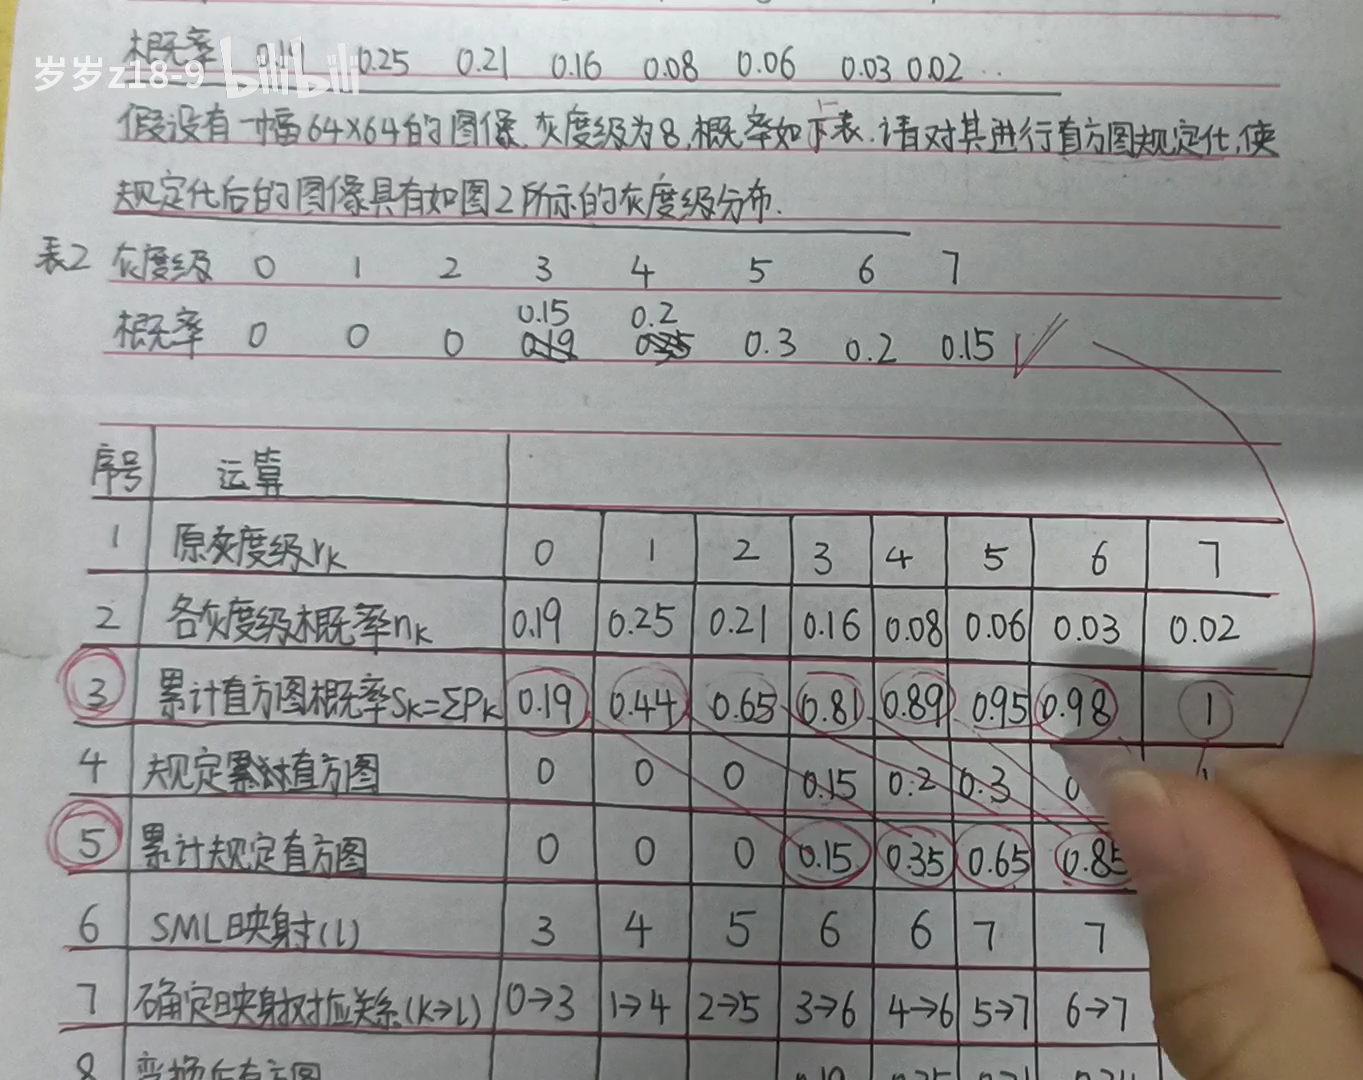 概率 0.19 0.25 0.21 0.16 0.08 0.06 0.03 0.02
岁岁z18-9 bilibili
假设有一幅64×64的图像,灰度级为8,概率如下表.请对其进行直方图规定化,使
规定化后的图像具有如图2所示的灰度级分布.
表2 灰度级 0 1 2 3 4 5 6 7
0.15 0.2
概率 0 0 0 0.3 0.2 0.15
序号 运算
1 原灰度级rk 0 1 2 3 4 5 6 7
2 各灰度级概率nk 0.19 0.25 0.21 0.16 0.08 0.06 0.03 0.02
3 累计直方图概率Sk=ΣPk 0.19 0.44 0.65 0.81 0.89 0.95 0.98 1
4 规定累计直方图 0 0 0 0.15 0.2 0.3
5 累计规定直方图 0 0 0 0.15 0.35 0.65 0.85
6 SML映射(l) 3 4 5 6 6 7 7
7 确定映射对应关系(k→l) 0→3 1→4 2→5 3→6 4→6 5→7 6→7
8 变换后直方图 0.19 0.25 0.21 0.24